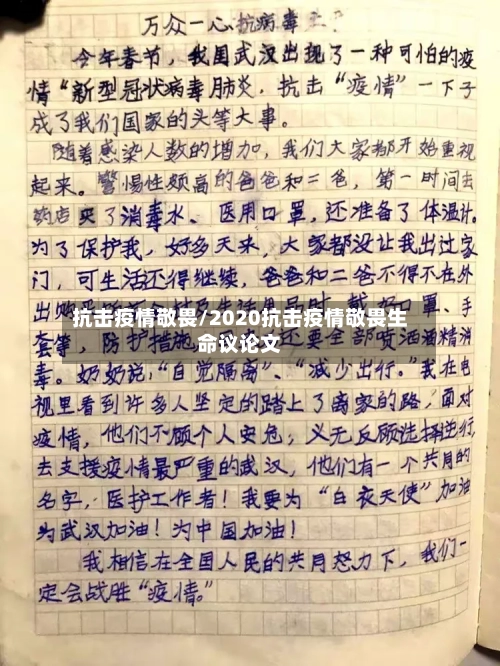 万众一心抗病毒
今年春节，我国武汉出现了一种可怕的疫
情“新型冠状病毒肺炎，抗击“疫情”一下子
成了我们国家的头等大事。
随着感染人数的增加，我们大家都开始重视
起来。警惕性颇高的爸爸和二爸，第一时间去
药店买了消毒水、医用口罩，还准备了体温计。
为了保护我，好多天来，大家都没让我出过家
门，可生活还得继续，爸爸和二爸不得不在外
出购
抗击疫情敬畏/2020抗击疫情敬畏生
口罩、手
套等，防护措施
命议论文
还要全部喷洒酒精消
毒。奶奶说，“自觉隔离”、“减少出行。”我在电
视里看到许多人坚定的踏上了离家的路，面对
疫情，他们不顾个人安危，义无反顾选择逆行，
去支援疫情最严重的武汉，他们有一个共同的
名字，医护工作者！我要为“白衣天使”加油
为武汉加油！为中国加油！
我相信在全国人民的共同努力下，我们一
定会战胜“疫情。”